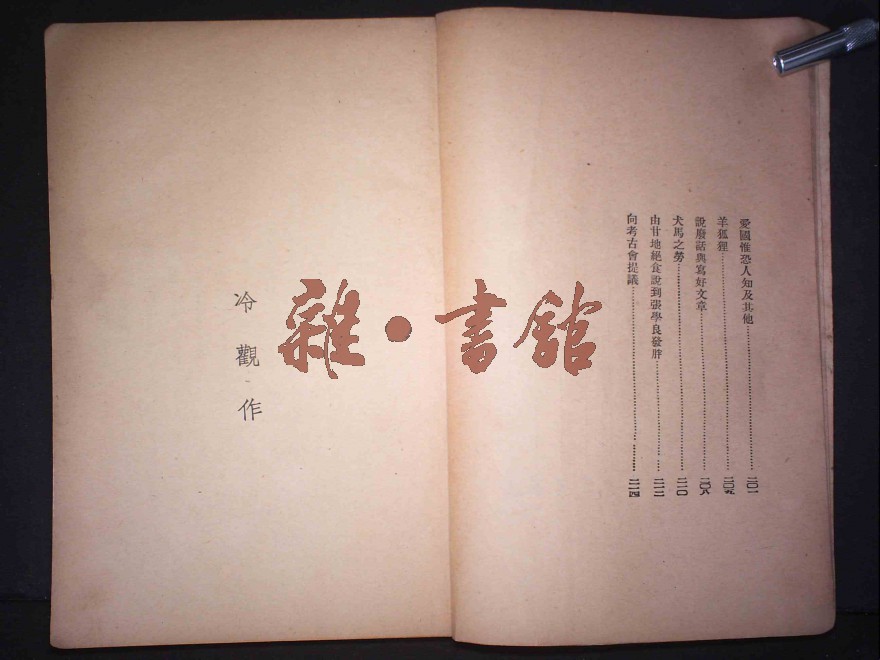 愛國惟恐人知及其他……二〇一
羊狐狸……二〇五
說廢話與寫好文章……二〇八
犬馬之勞……二一〇
由甘地絕食說到張學良發胖……二一二
向考古會提議……二一四
雜·書館
冷觀作